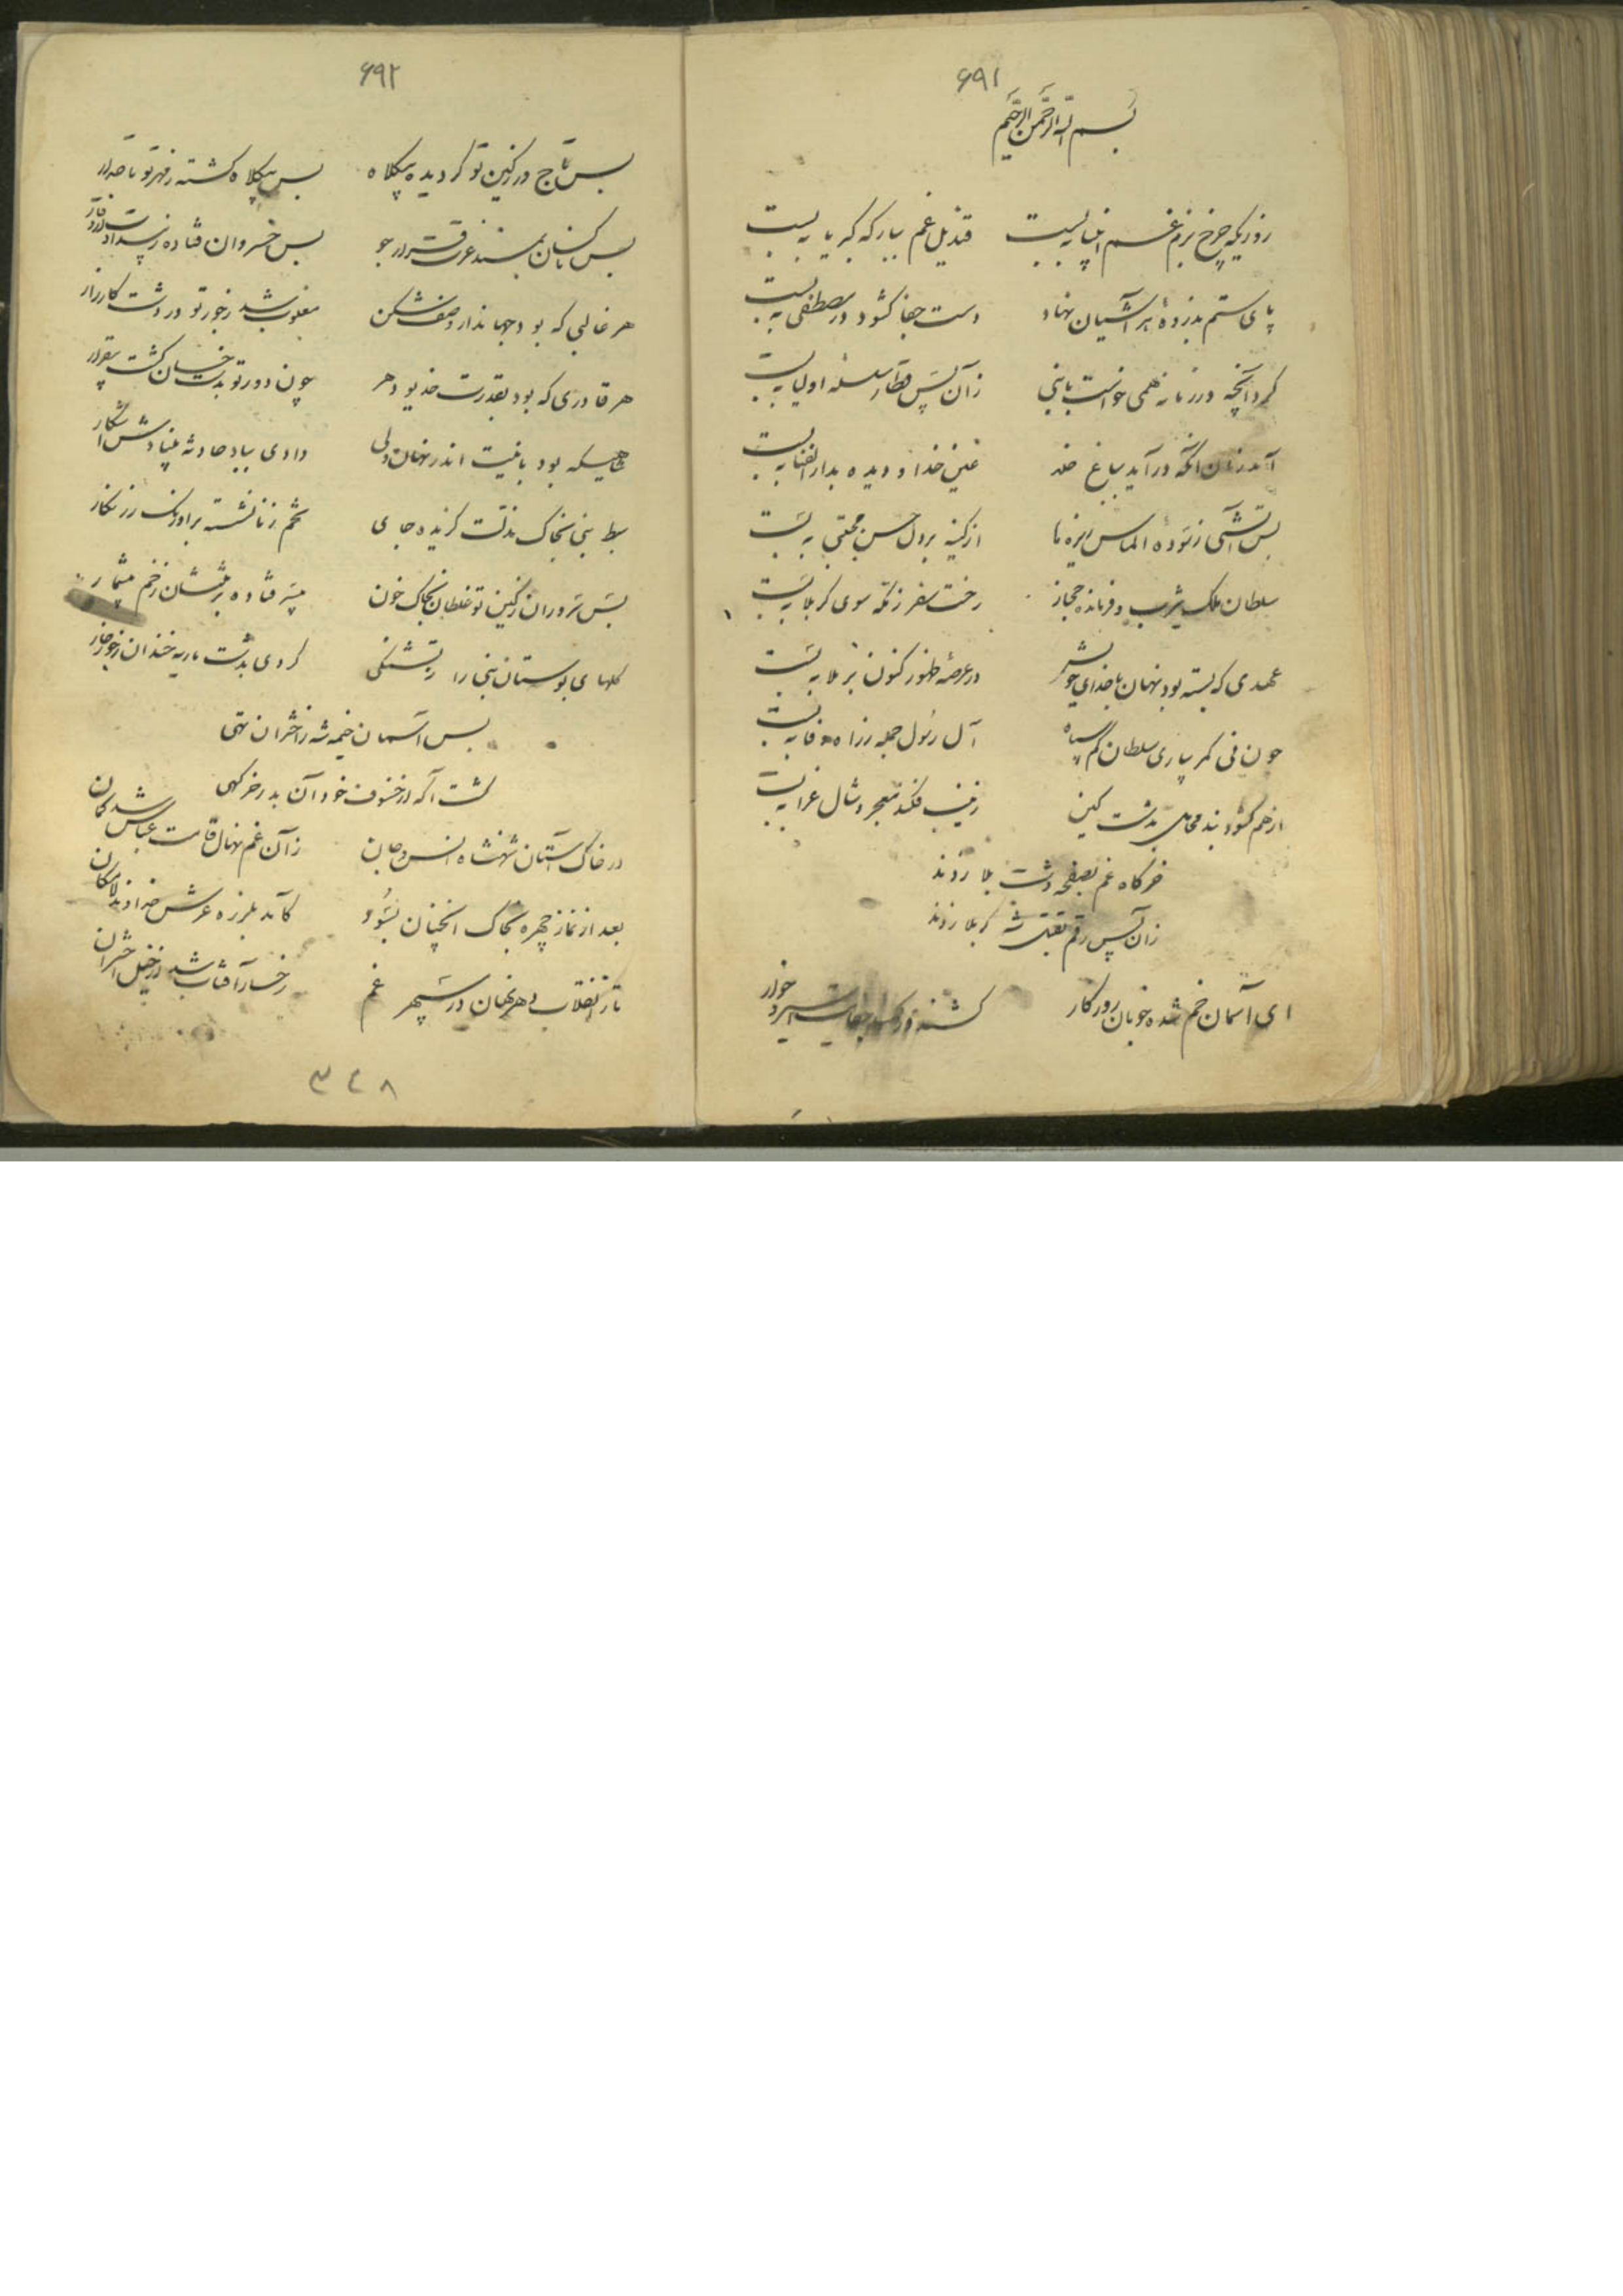 ۶۹۱
بسم الله الرحمن الرحیم
روزیکه چرخ بزم غم انبیا به بست قندیل غم ببارگه کبریا به بست
پای ستم بذروهٔ هر آشیان نهاد دست جفا گشود و در مصطفی به بست
کرد آنچه در زمانه همی خواست با نبی زآن پس قطار سلسله اولیا به بست
آمد زنان آنکه درآید بباغ خلد عین خدا دو دیده بدار الفنا به بست
پس آتشی ز تودهٔ الماس ریزه‌ها از کینه بر دل حسن مجتبی به بست
سلطان ملک یثرب و فرمانده حجاز رخت سفر ز مکه سوی کربلا به بست
عهدی که بسته بود نهان با خدای خویش در عرصهٔ ظهور کنون برملا به بست
چون نی کمر بیاری سلطان کم سپاه آل رسول جمله ز راه وفا به بست
از هم گشود بند محامل بدشت کین زینب فکند معجر و شال عزا به بست
خرگاه غم بصفحه دشت بلا زدند
زان پس رقم بقتل شه کربلا زدند
ای آسمان خم شده خوبان روزگار گشتند در
۶۹۲
بس تاجور ز کین تو گردیده بیکلاه بس بیکلاه گشته ز مهر تو تاجدار
بس ناکسان بمسند عزت قرار جو بس خسروان فتاده ز بیداد
هر غالبی که بود جهاندار و صف شکن مغلوب شد ز جور تو در دشت کارزار
هر قادری که بود بقدرت خدیو دهر چون دور تو بدست خسان گشت بیقرار
شاهیکه بود باغیت اندر نهان ولی دادی بباد حادثه بنیادش آشکار
سبط نبی بخاک مذلت گزیده جای تخم زنا نشسته بر اورنگ زرنگار
بس سروران ز کین تو غلطان بخاک خون سر فتاده بر تنشان زخم بیشمار
گلهای بوستان نبی را ز تشنگی کردی بدشت ماریه خندان ز جور خار
بس آسمان خیمه شه ز اختران تهی
گشت آگه از خسوف خود آن بدر خرگهی
در خاک آستان شهنشاه انس و جان زآن غم نهال قامت عباس شد کمان
بعد از نماز چهره بخاک آنچنان بسود کآمد بلرزه عرش خداوند لامکان
تا ز انقلاب دهر نهان در سپهر غم رخسار آفتاب شد از خیل اختران
۳۴۸